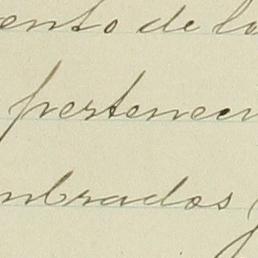 ento de lo
pertenec
mbrados y